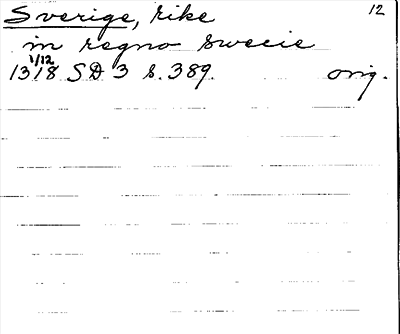 Sverige, rike 12
in regno swecie
1/12
1318 SD 3 s. 389. orig.